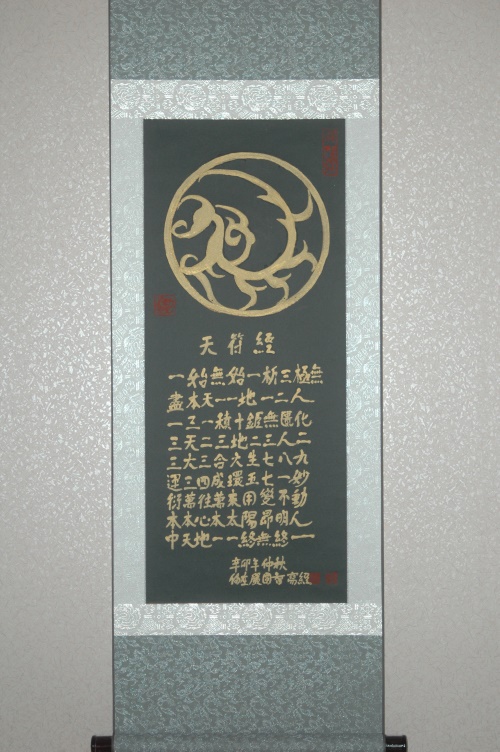 天符経
一始無始一析三極無
盡本天一一地一二人
一三一積十鉅無匱化
三天二三地二三人二
三大三合六生七八九
運三四成環五七一妙
衍萬往萬來用變不動
本本心本太陽昂明人
中天地一一終無終一
辛卯年仲秋